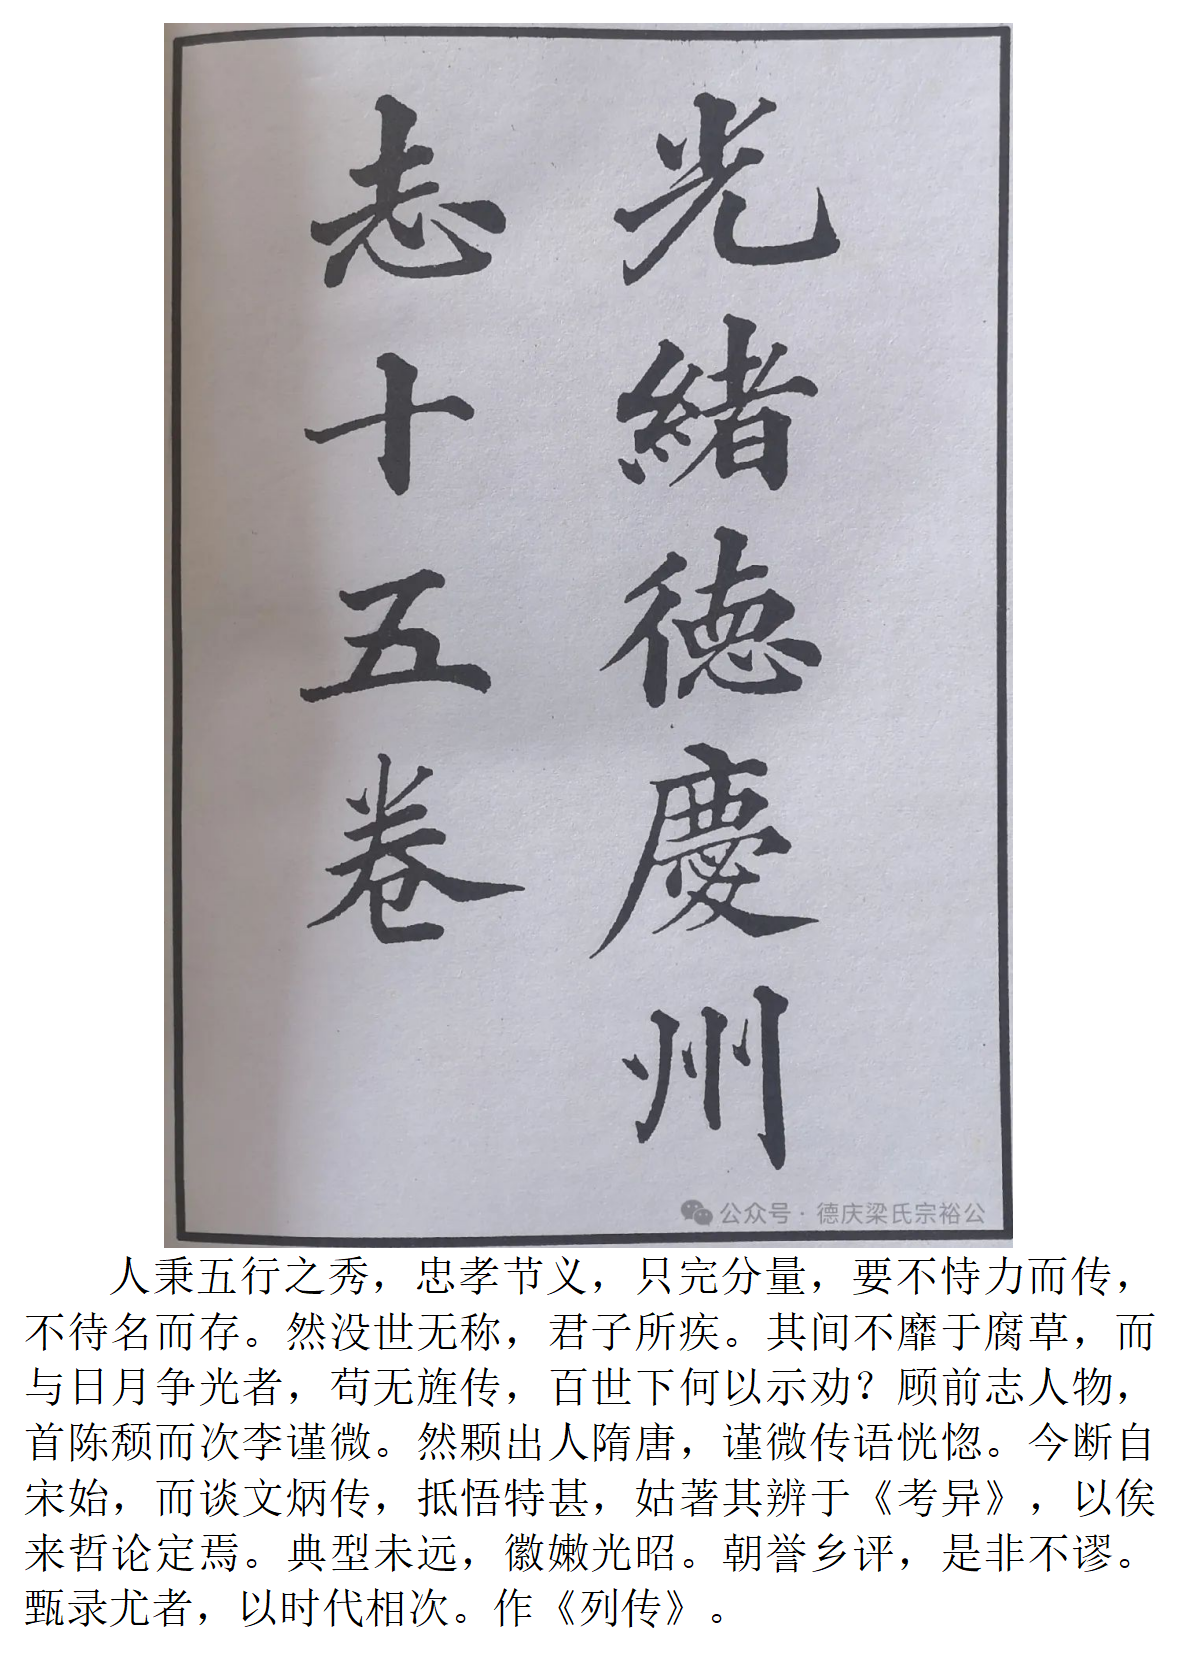 光緒德慶州
志十五卷
公众号·德庆梁氏宗裕公
人秉五行之秀，忠孝节义，只完分量，要不恃力而传，
不待名而存。然没世无称，君子所疾。其间不靡于腐草，而
与日月争光者，苟无旌传，百世下何以示劝？顾前志人物，
首陈颏而次李谨微。然颗出人隋唐，谨微传语恍惚。今断自
宋始，而谈文炳传，抵悟特甚，姑著其辨于《考异》，以俟
来哲论定焉。典型未远，徽嫩光昭。朝誉乡评，是非不谬。
甄录尤者，以时代相次。作《列传》。